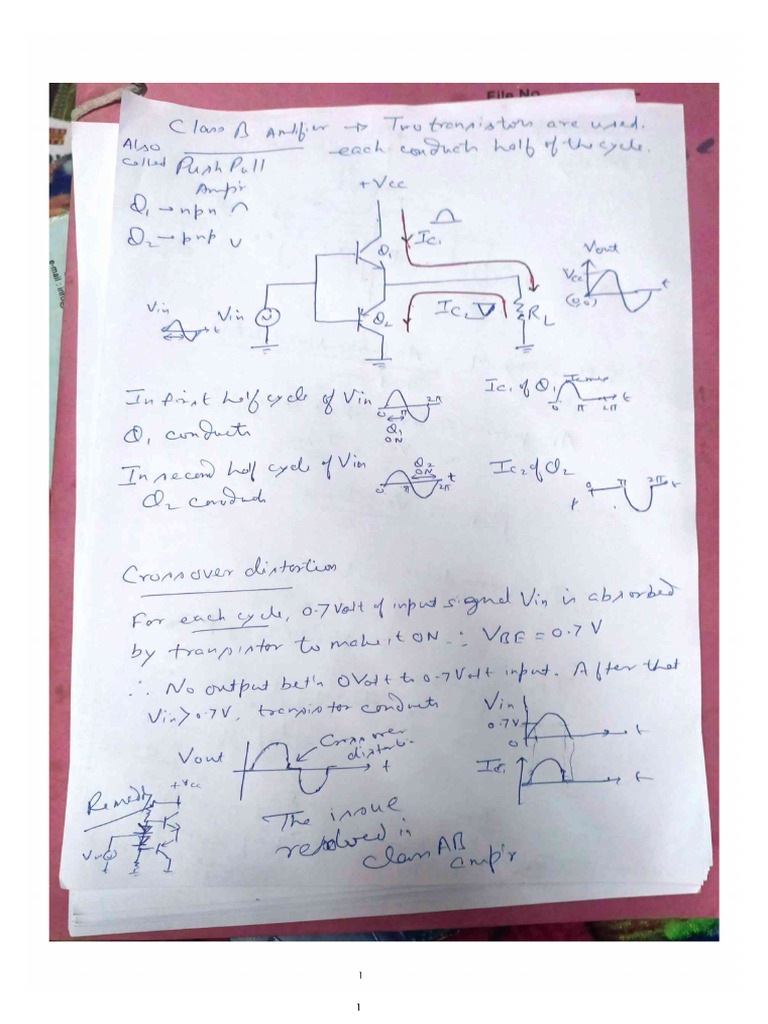 File No
Class B Amplifier → Two transistors are used.
Also called Push Pull Ampr
each conducts half of the cycle.
+Vcc
Q1 → npn
Q2 → pnp
Ic1
Q1
Vout
Vcc
t
(0,0)
Vin
t
Vin
Q2
Ic2
RL
In first half cycle of Vin
0 π 2π
Q1 ON
Ic1 of Q1
Icmax
t
0 π 2π
Q1 conducts
In second half cycle of Vin
Q2 ON
t
0 π 2π
Ic2 of Q2
0 π 2π t
Q2 conducts
Crossover distortion
For each cycle, 0.7 Volt of input signal Vin is absorbed
by transistor to make it ON. ∴ VBE = 0.7 V
∴ No output bet'n 0 Volt to 0.7 Volt input. After that
Vin > 0.7V, transistor conducts
Vin
0.7V
0
t
Vout
Crossover
t
t
Remedy
+Vcc
Vin
The issue
resolved in
class AB
amp'r
1
1